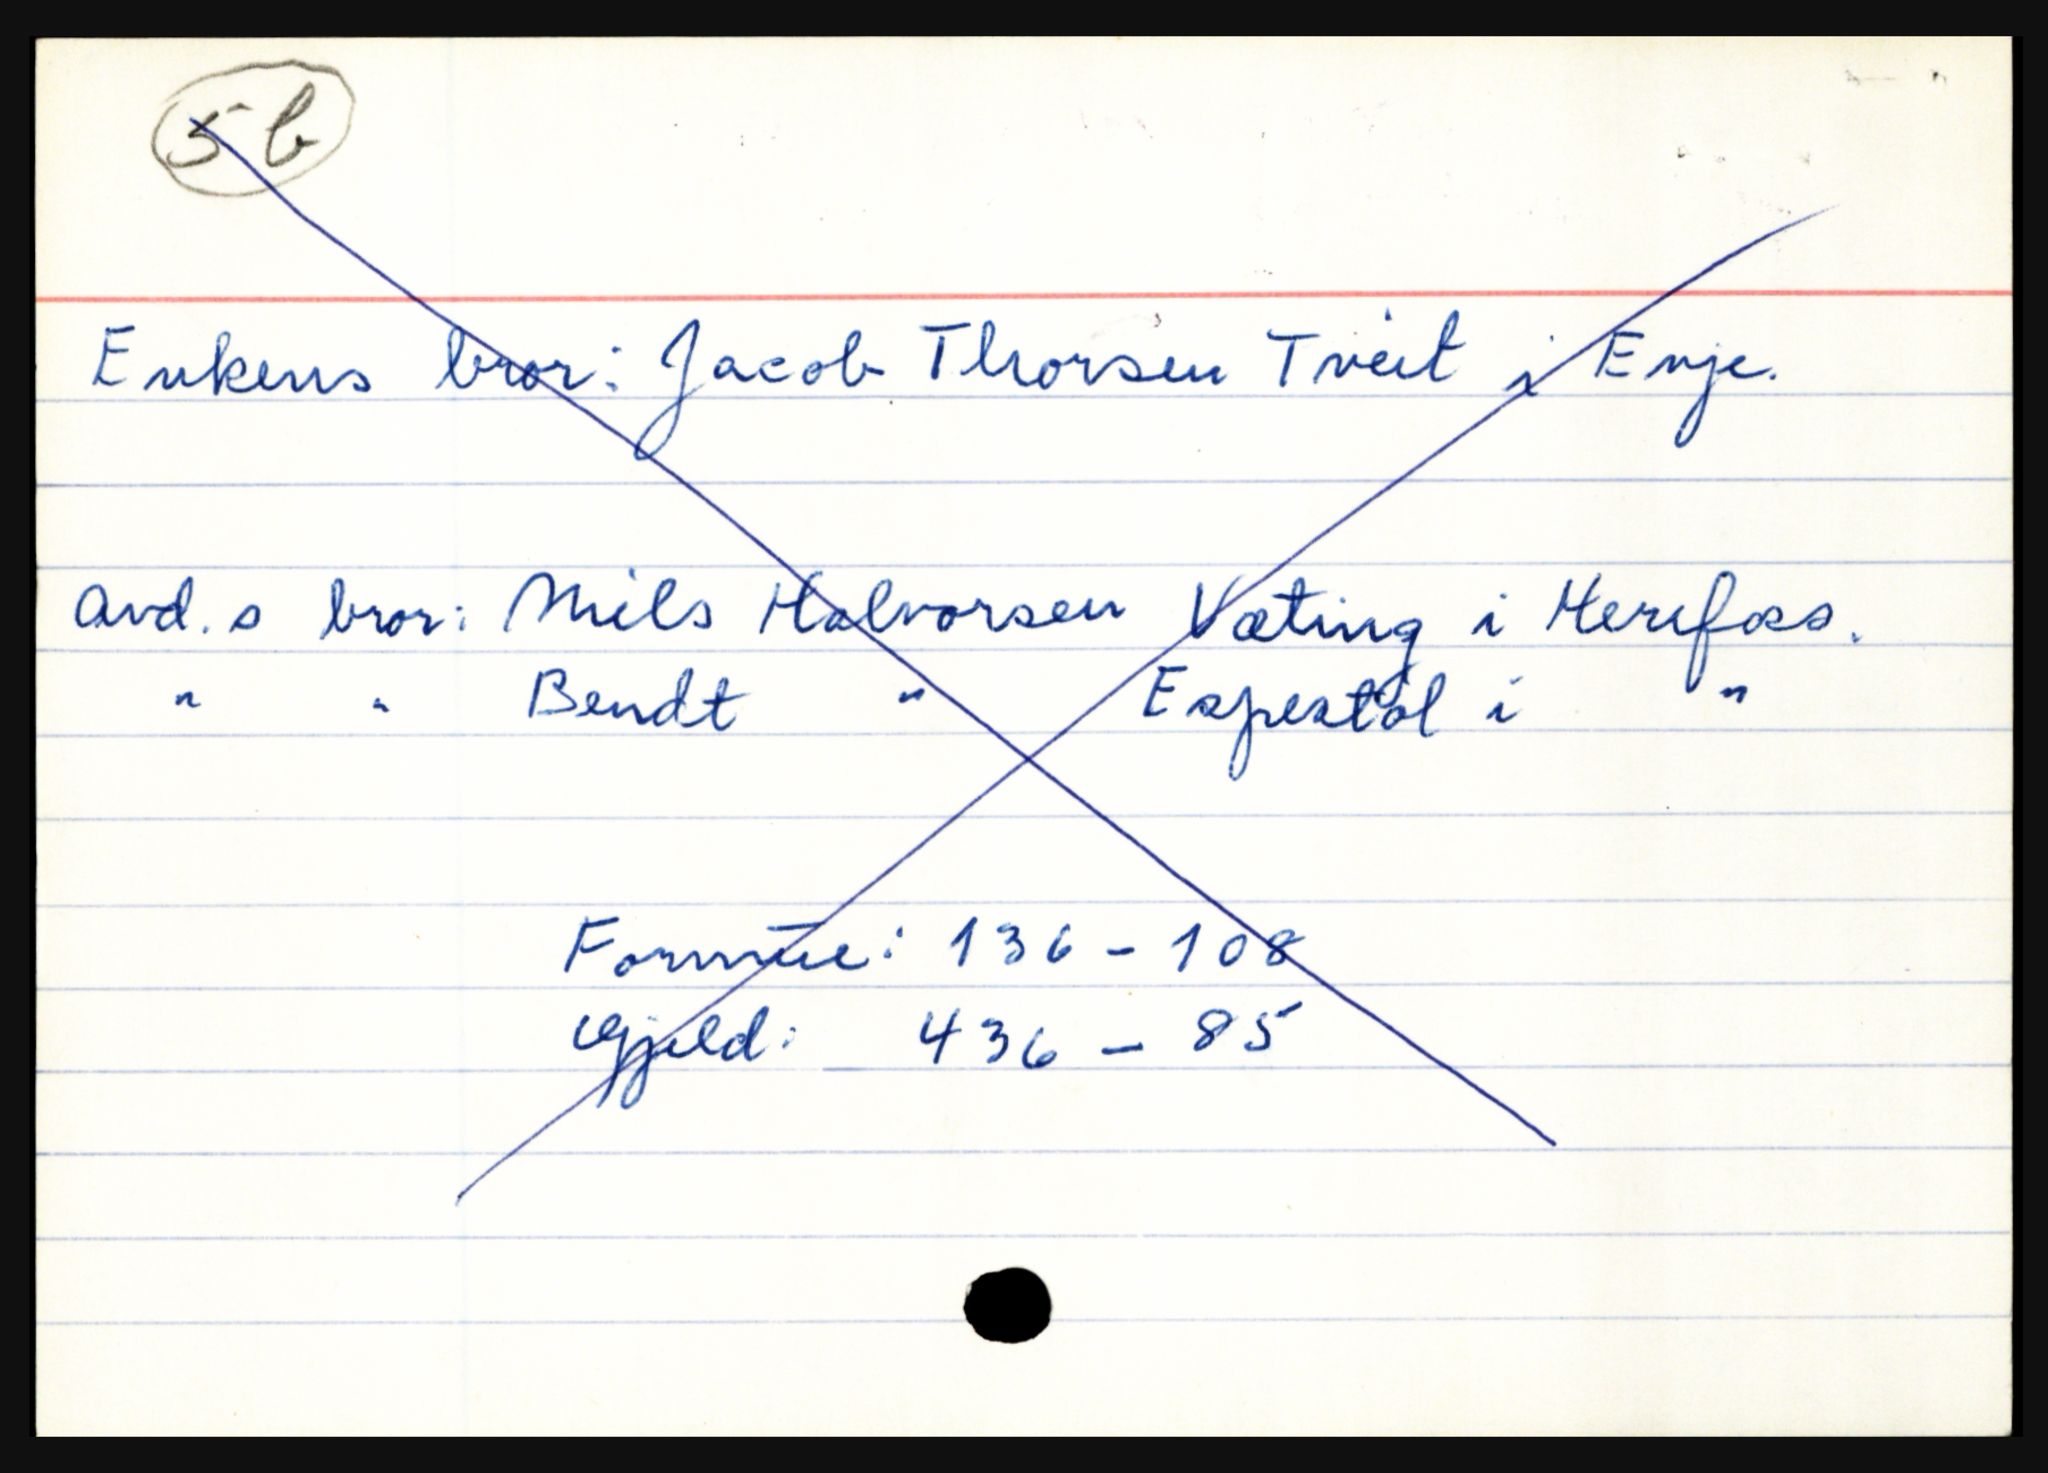 5b
Enkens bror: Jacob Thorsen Tveit i Evje.
Avd. s bror: Nils Halvorsen Væting i Herefoss.
" " Bendt " Espestøl i "
Formue: 136 - 108
Gjeld: 436 - 85